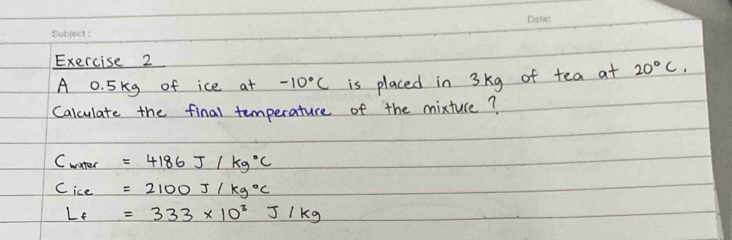 Date:
Subject:
Exercise 2
A 0.5kg of ice at -10°C is placed in 3kg of tea at 20°C.
Calculate the final temperature of the mixture?
Cwater = 4186 J / kg°C
Cice = 2100 J / kg°C
Lf = 333 × 10³ J / kg